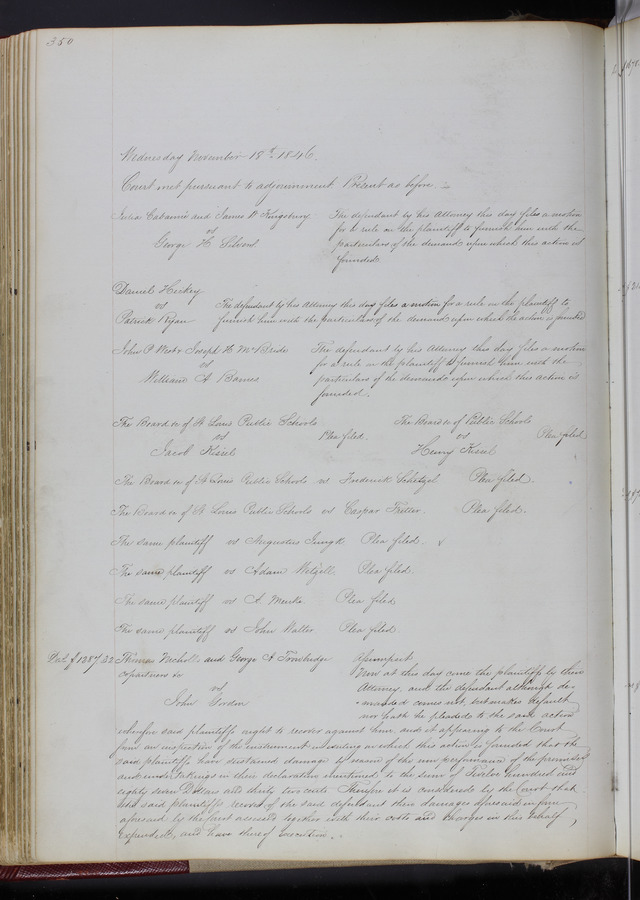 350
Wednesday November 18th 1846.
Court met pursuant to adjournment Present as before.
Julia Cabanne and James W Kingsbury
vs
George H
The defendant by his Attorney this day files a motion
for a rule on the plaintiff to furnish him with the
particulars of the demand upon which this action is
founded.
Daniel Hickey
vs
Patrick Ryan
The defendant by his Attorney this day files a motion for a rule on the plaintiff to
furnish him with the particulars of the demand upon which the action is founded
John P Joseph H McBride
vs
William A Barnes
The defendant by his Attorney this day files a motion
for a rule on the plaintiff to furnish him with the
particulars of the demands upon which this action is
founded.
The Board &c of St Louis Public Schools
vs
Jacob
Plea filed.
The Board &c of Public Schools
vs
Henry
Plea filed
The Board &c of St Louis Public Schools vs Frederick Plea filed.
The Board &c of St Louis Public Schools vs Caspar Plea filed.
The same plaintiff vs Augustus Jungk Plea filed.
The same plaintiff vs Adam Wetzell. Plea filed.
The same plaintiff vs A. Menke Plea filed
The same plaintiff vs John Walter Plea filed.
$1287.32
Thomas Nicholls and George A Trowbridge
copartners &c
vs
John
Assumpsit
Now at this day come the plaintiffs by their
Attorney, and the defendant although de-
manded comes not, but makes default
nor hath he pleaded to the said action
wherefore said plaintiffs ought to recover against him, and it appearing to the Court
from an inspection of the instrument in writing on which this action is founded that the
said plaintiffs have sustained damage by reason of the non performance of the promises
and undertakings in their declaration mentioned, to the sum of Twelve hundred and
eighty seven Dollars and thirty two cents Therefore it is considered by the Court that
the said plaintiffs recover of the said defendant their damages aforesaid in form
aforesaid by the Court assessed together with their costs and charges in this behalf
expended, and have thereof execution.